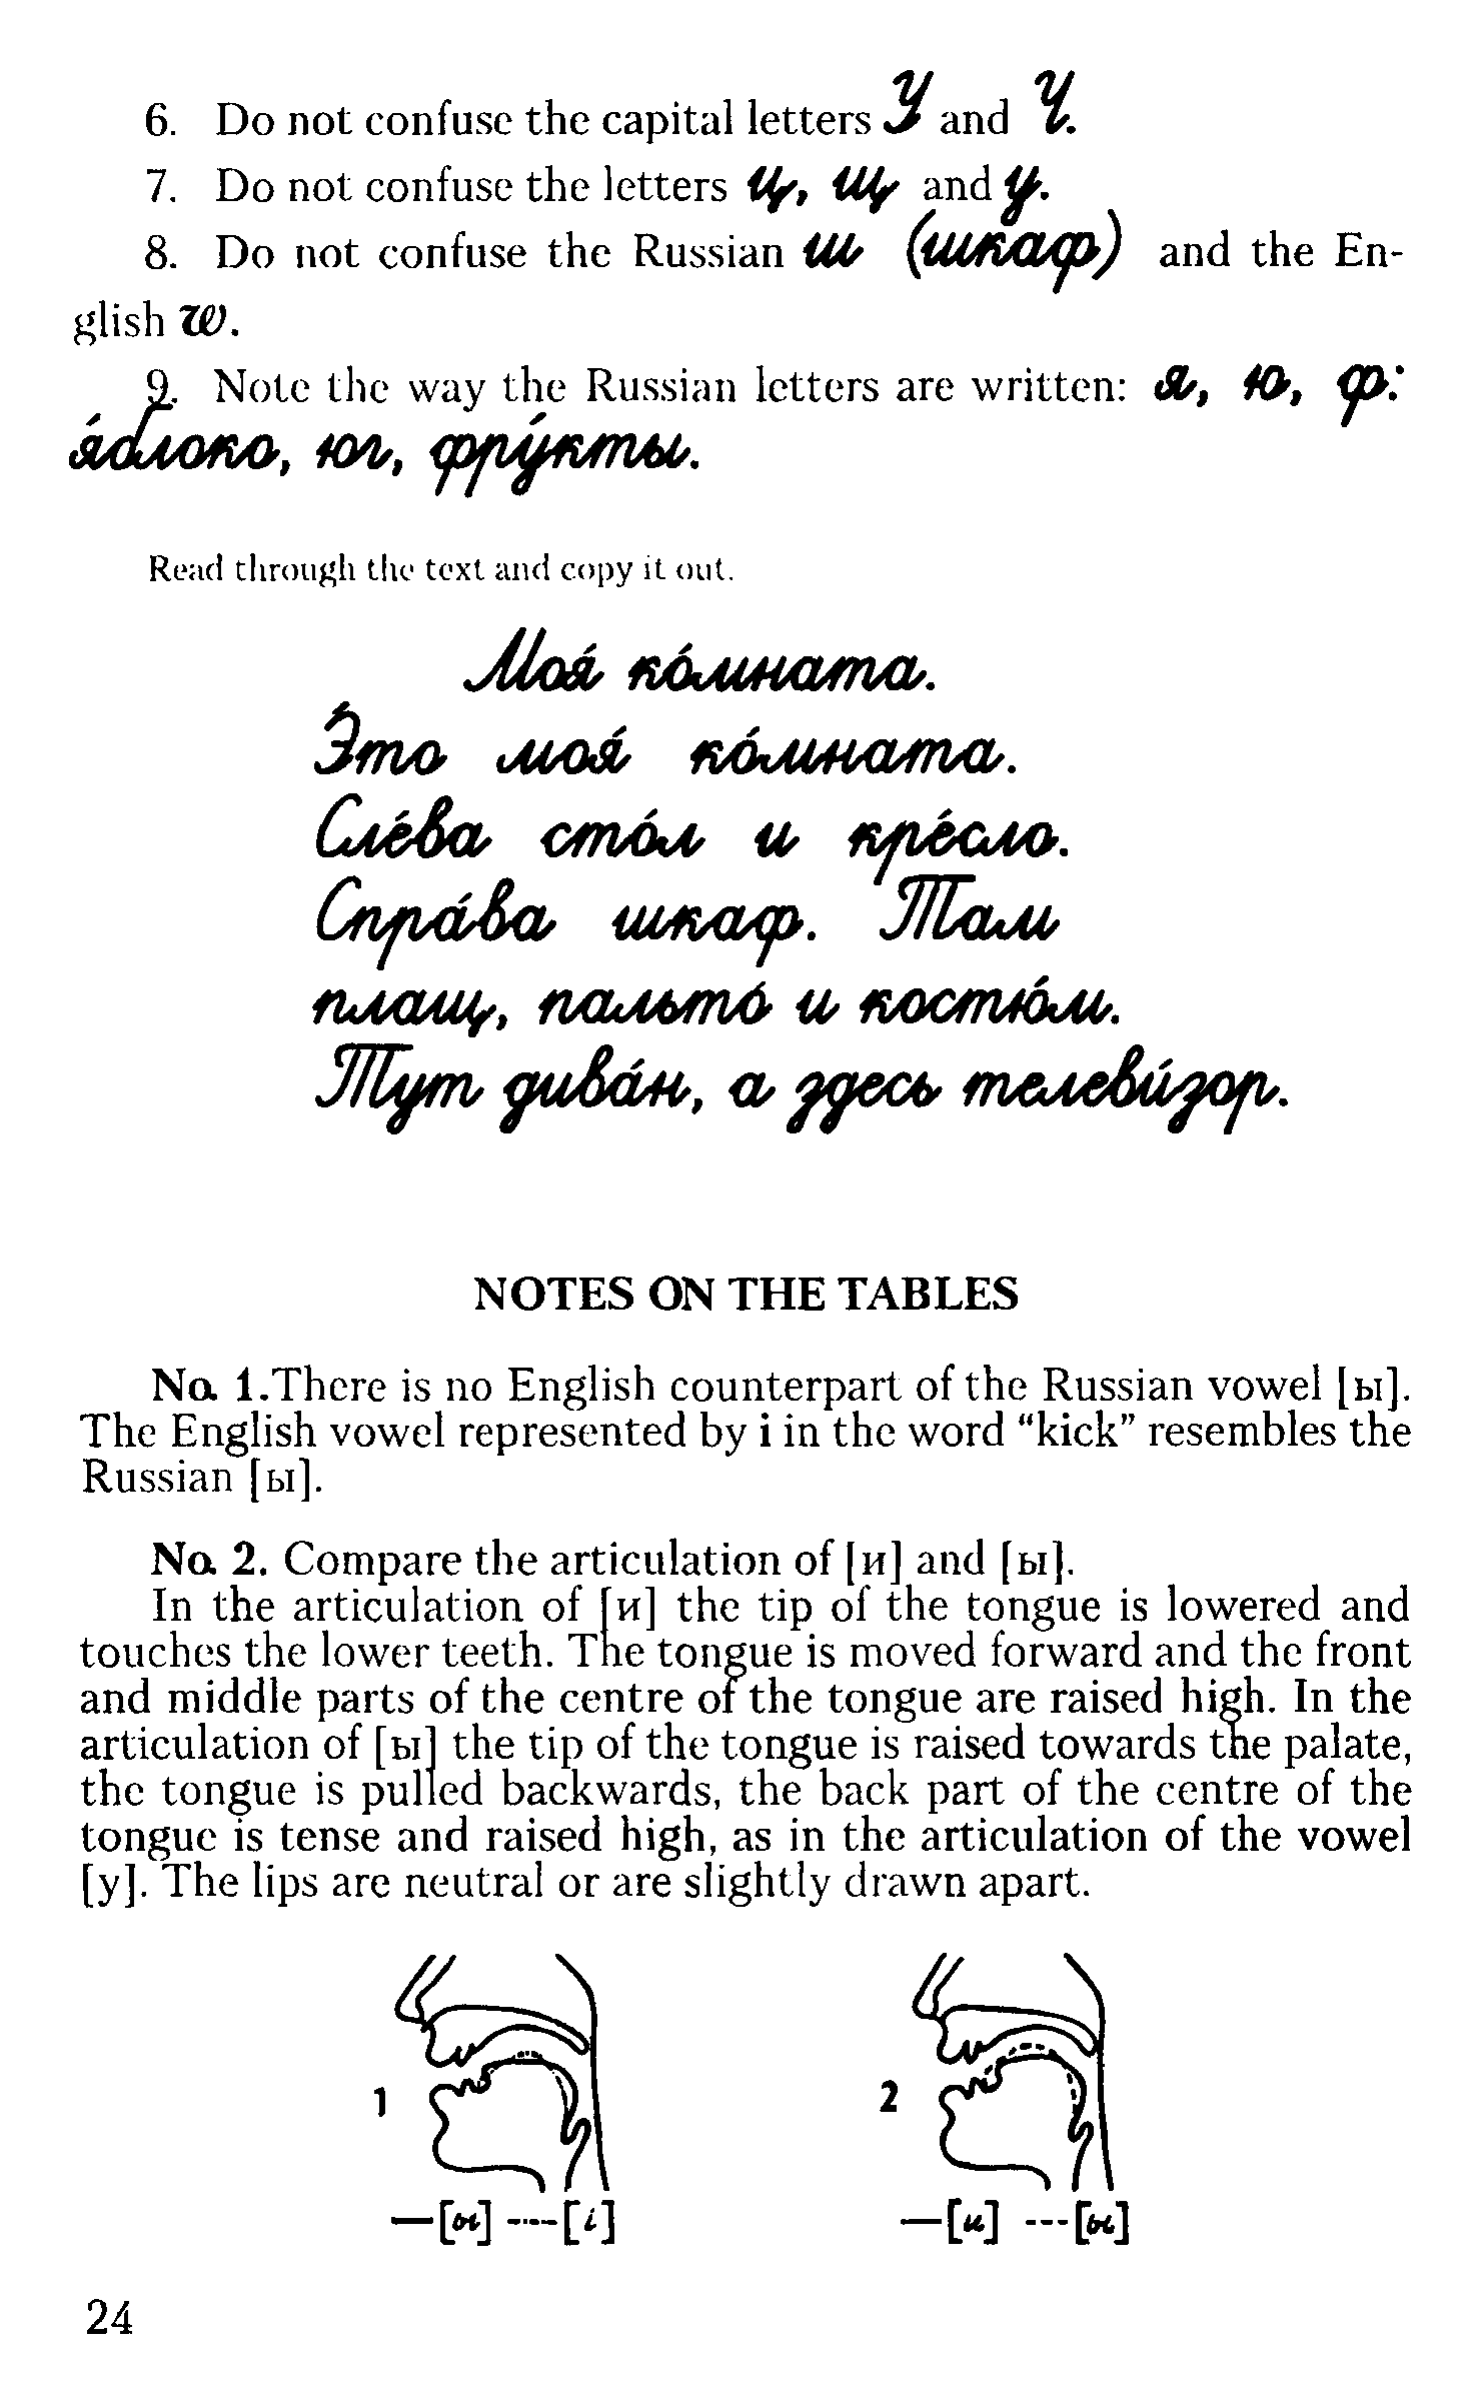 6. Do not confuse the capital letters У and Ч.
7. Do not confuse the letters ц, щ and у.
8. Do not confuse the Russian ш (шкаф) and the En-
glish w.
9. Note the way the Russian letters are written: я, ю, ф:
я́блоко, юг, фру́кты.
Read through the text and copy it out.
Моя́ ко́мната.
Э́то моя́ ко́мната.
Сле́ва сто́л и кре́сло.
Спра́ва шкаф. Там
плащ, пальто́ и костю́м.
Тут дива́н, а здесь телеви́зор.
NOTES ON THE TABLES
No. 1. There is no English counterpart of the Russian vowel [ы].
The English vowel represented by i in the word “kick” resembles the
Russian [ы].
No. 2. Compare the articulation of [и] and [ы].
In the articulation of [и] the tip of the tongue is lowered and
touches the lower teeth. The tongue is moved forward and the front
and middle parts of the centre of the tongue are raised high. In the
articulation of [ы] the tip of the tongue is raised towards the palate,
the tongue is pulled backwards, the back part of the centre of the
tongue is tense and raised high, as in the articulation of the vowel
[у]. The lips are neutral or are slightly drawn apart.
1 2
—[ы] ----[i] —[и] ---[ы]
24